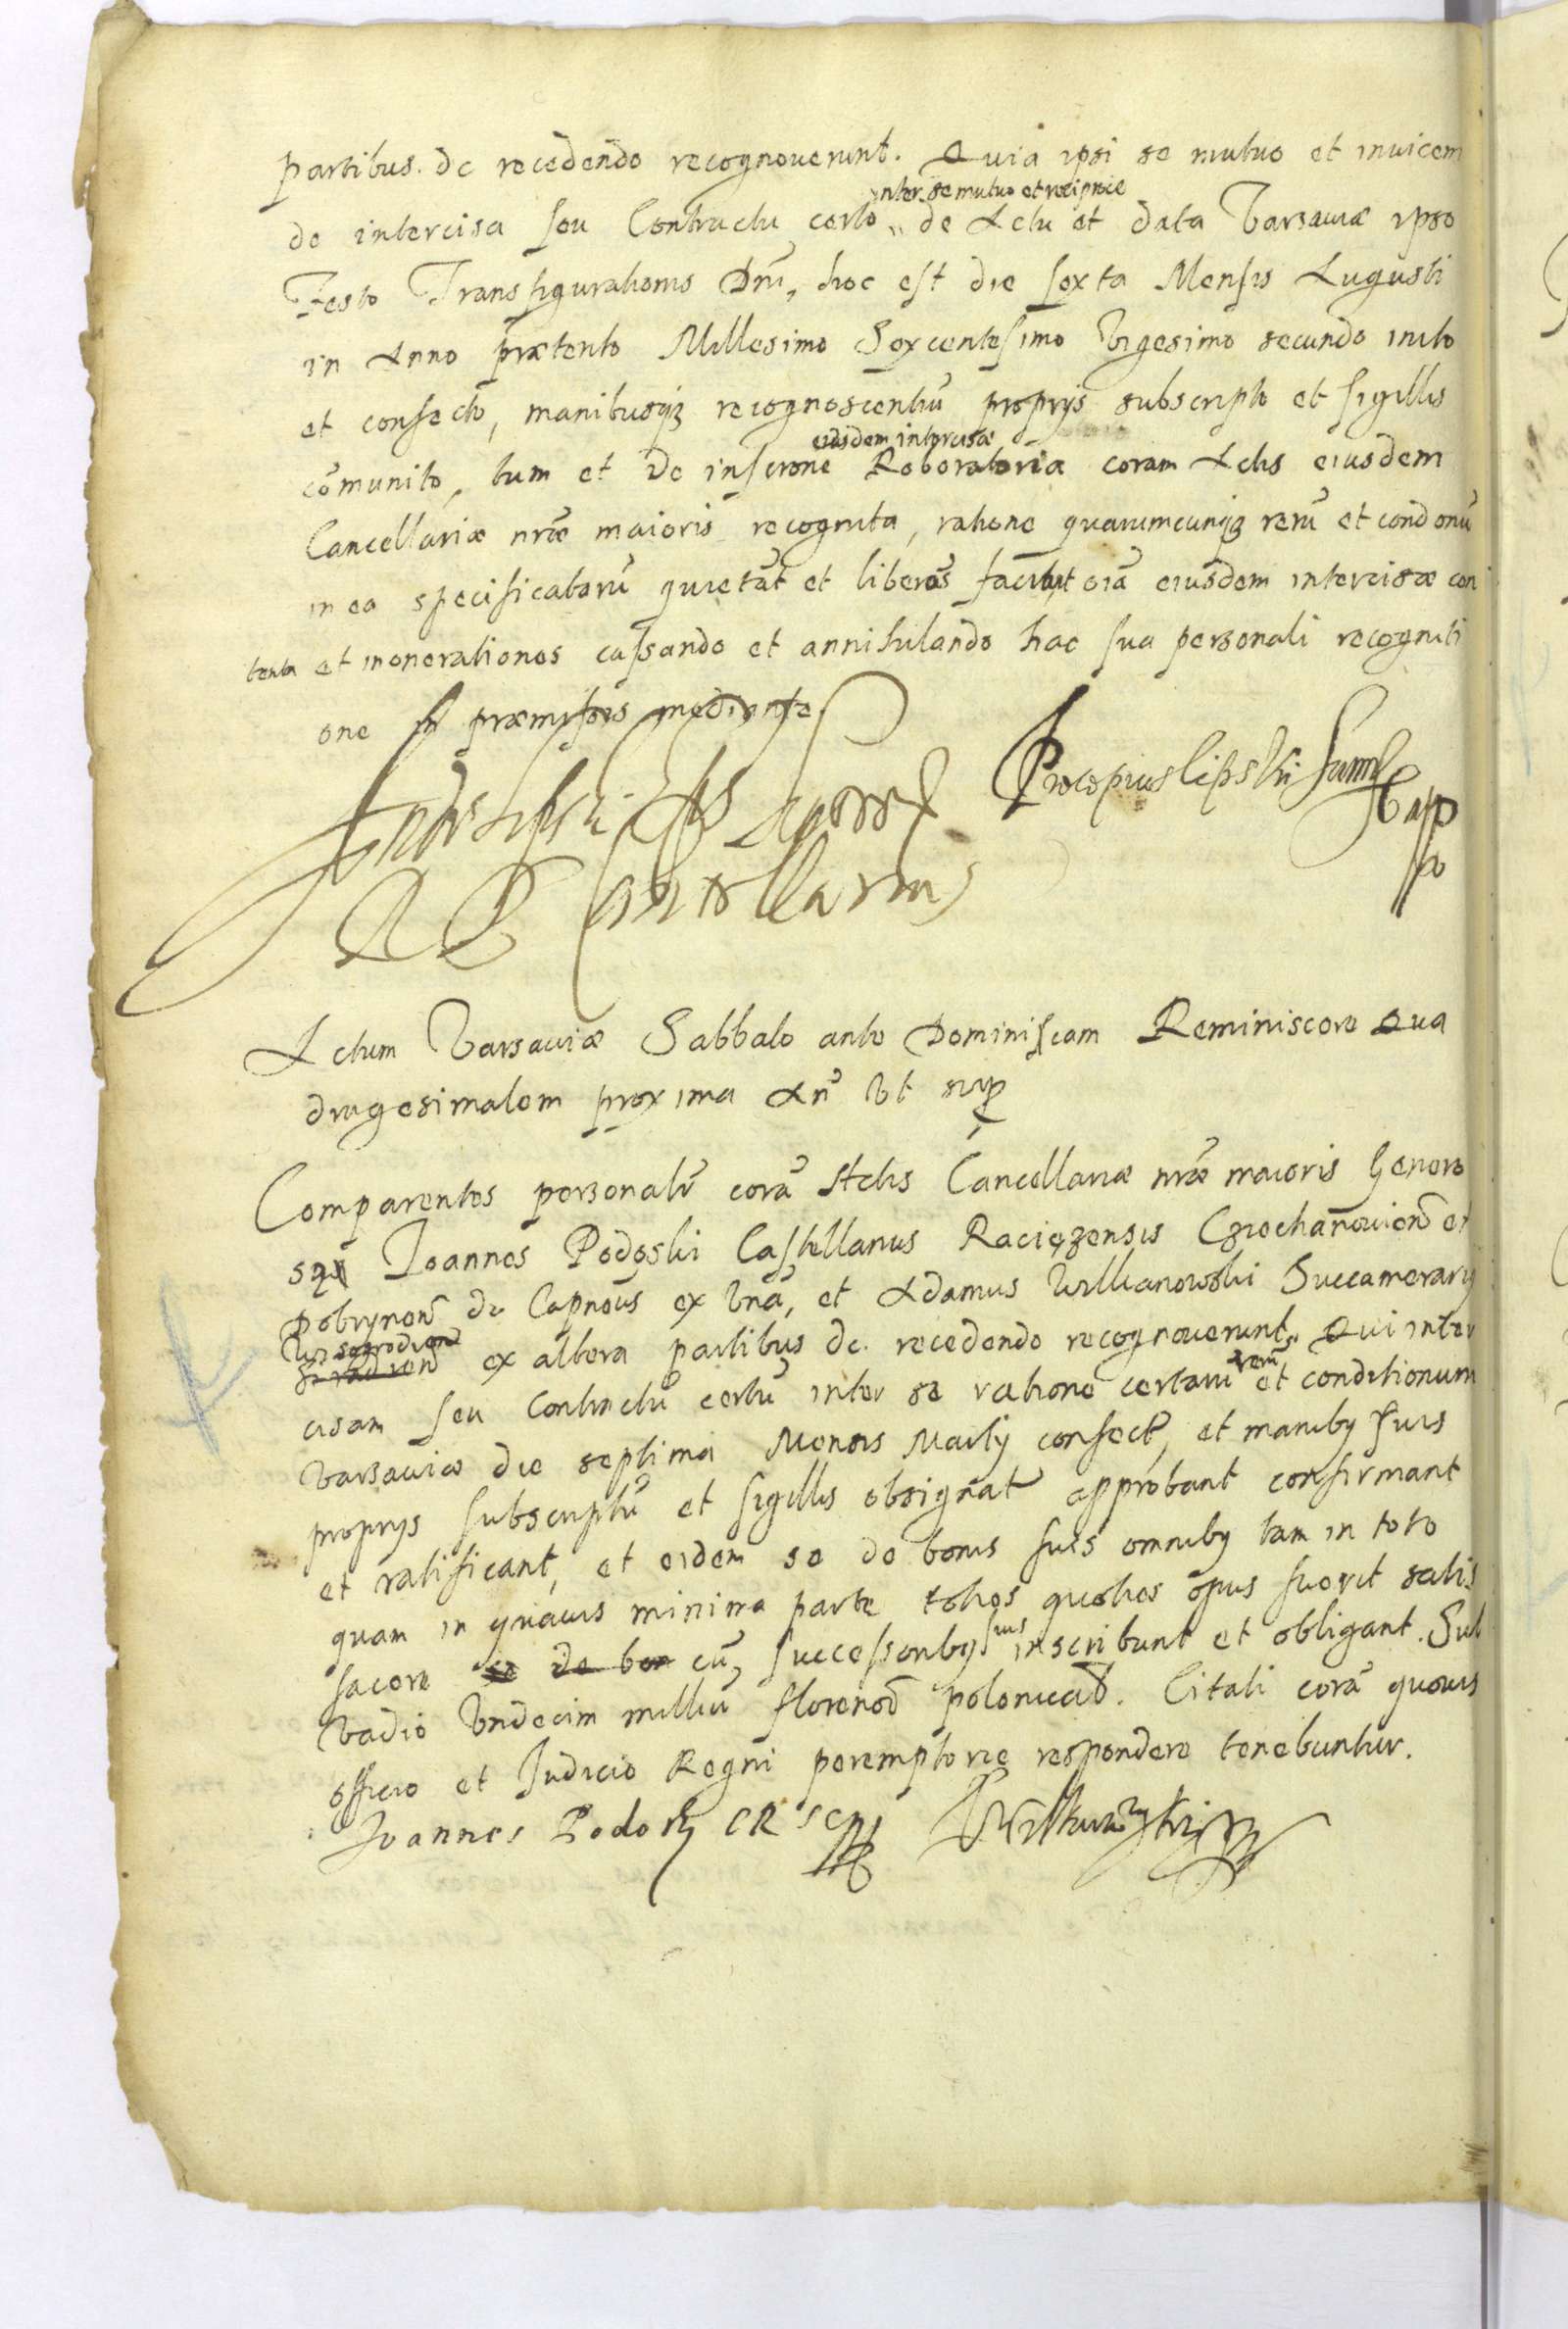 partibus. de recedendo recognouerunt. Quia ipsi se mutuo et inuicem
inter se mutuo et reciproce
de intercisa seu Contractu certo de Actu et data Varsauiæ ipso
Festo Transfigurationis Dni, hoc est die sexta Mensis Augusti
in Anno prætento Millesimo Sexcentesimo Vigesimo secundo inito
et confecto, manibusq; recognoscentiũ proprijs subscripto et sigillis
eiusdem intercisæ
cõmunito, tum et de inscrone Roboratoria coram Actis eiusdem
Cancellariæ nræ maioris recognita, ratione quarumcunq; rerũ et condonũ
in ea specificatarũ quietãt et liberos faciũt oĩa eiusdem intercisæ con
tenta et inonerationes cassando et annihilando hac sua personali recogniti
one in præmissis mediante.
Andr Lipski Eps
Procopius Lipski
R P Cancellarius
Actum Varsauiæ Sabbato ante Dominicam Reminiscere Qua
dragesimalem proxima Añ Vt sup
Comparentes personalr corã Actis Cancellariæ nræ maioris Genero
sqs Ioannes Podoski Castellanus Raciązensis Ciechanouien et
Dobrynen de Capneus ex vna, et Adamus Wilkanowski Succamerarij
Wissegrodien
ex altera partibus de. recedendo recognouerunt. Qui inter
cisam seu Contractũ certũ inter se ratione certarũ rerũ et conditionum
Varsauiæ die septima Mensis Martij confectr, et manibq suis
proprijs subscriptũ et sigillis obsignatr approbant confirmant
et ratificant, et eidem se de bonis suis omnibq tam in toto
quam in quauis minima parte toties quoties opus fuerit satis
facere se de bon cũ successoribq suis inscribunt et obligant. Sub
vadio Vndecim milliũ florenor polonicalr. Citati corã quouis
officio et Iudicio Regni peremptorie respondere tenebuntur.
Ioannes Podosky CR
AWilkanowski